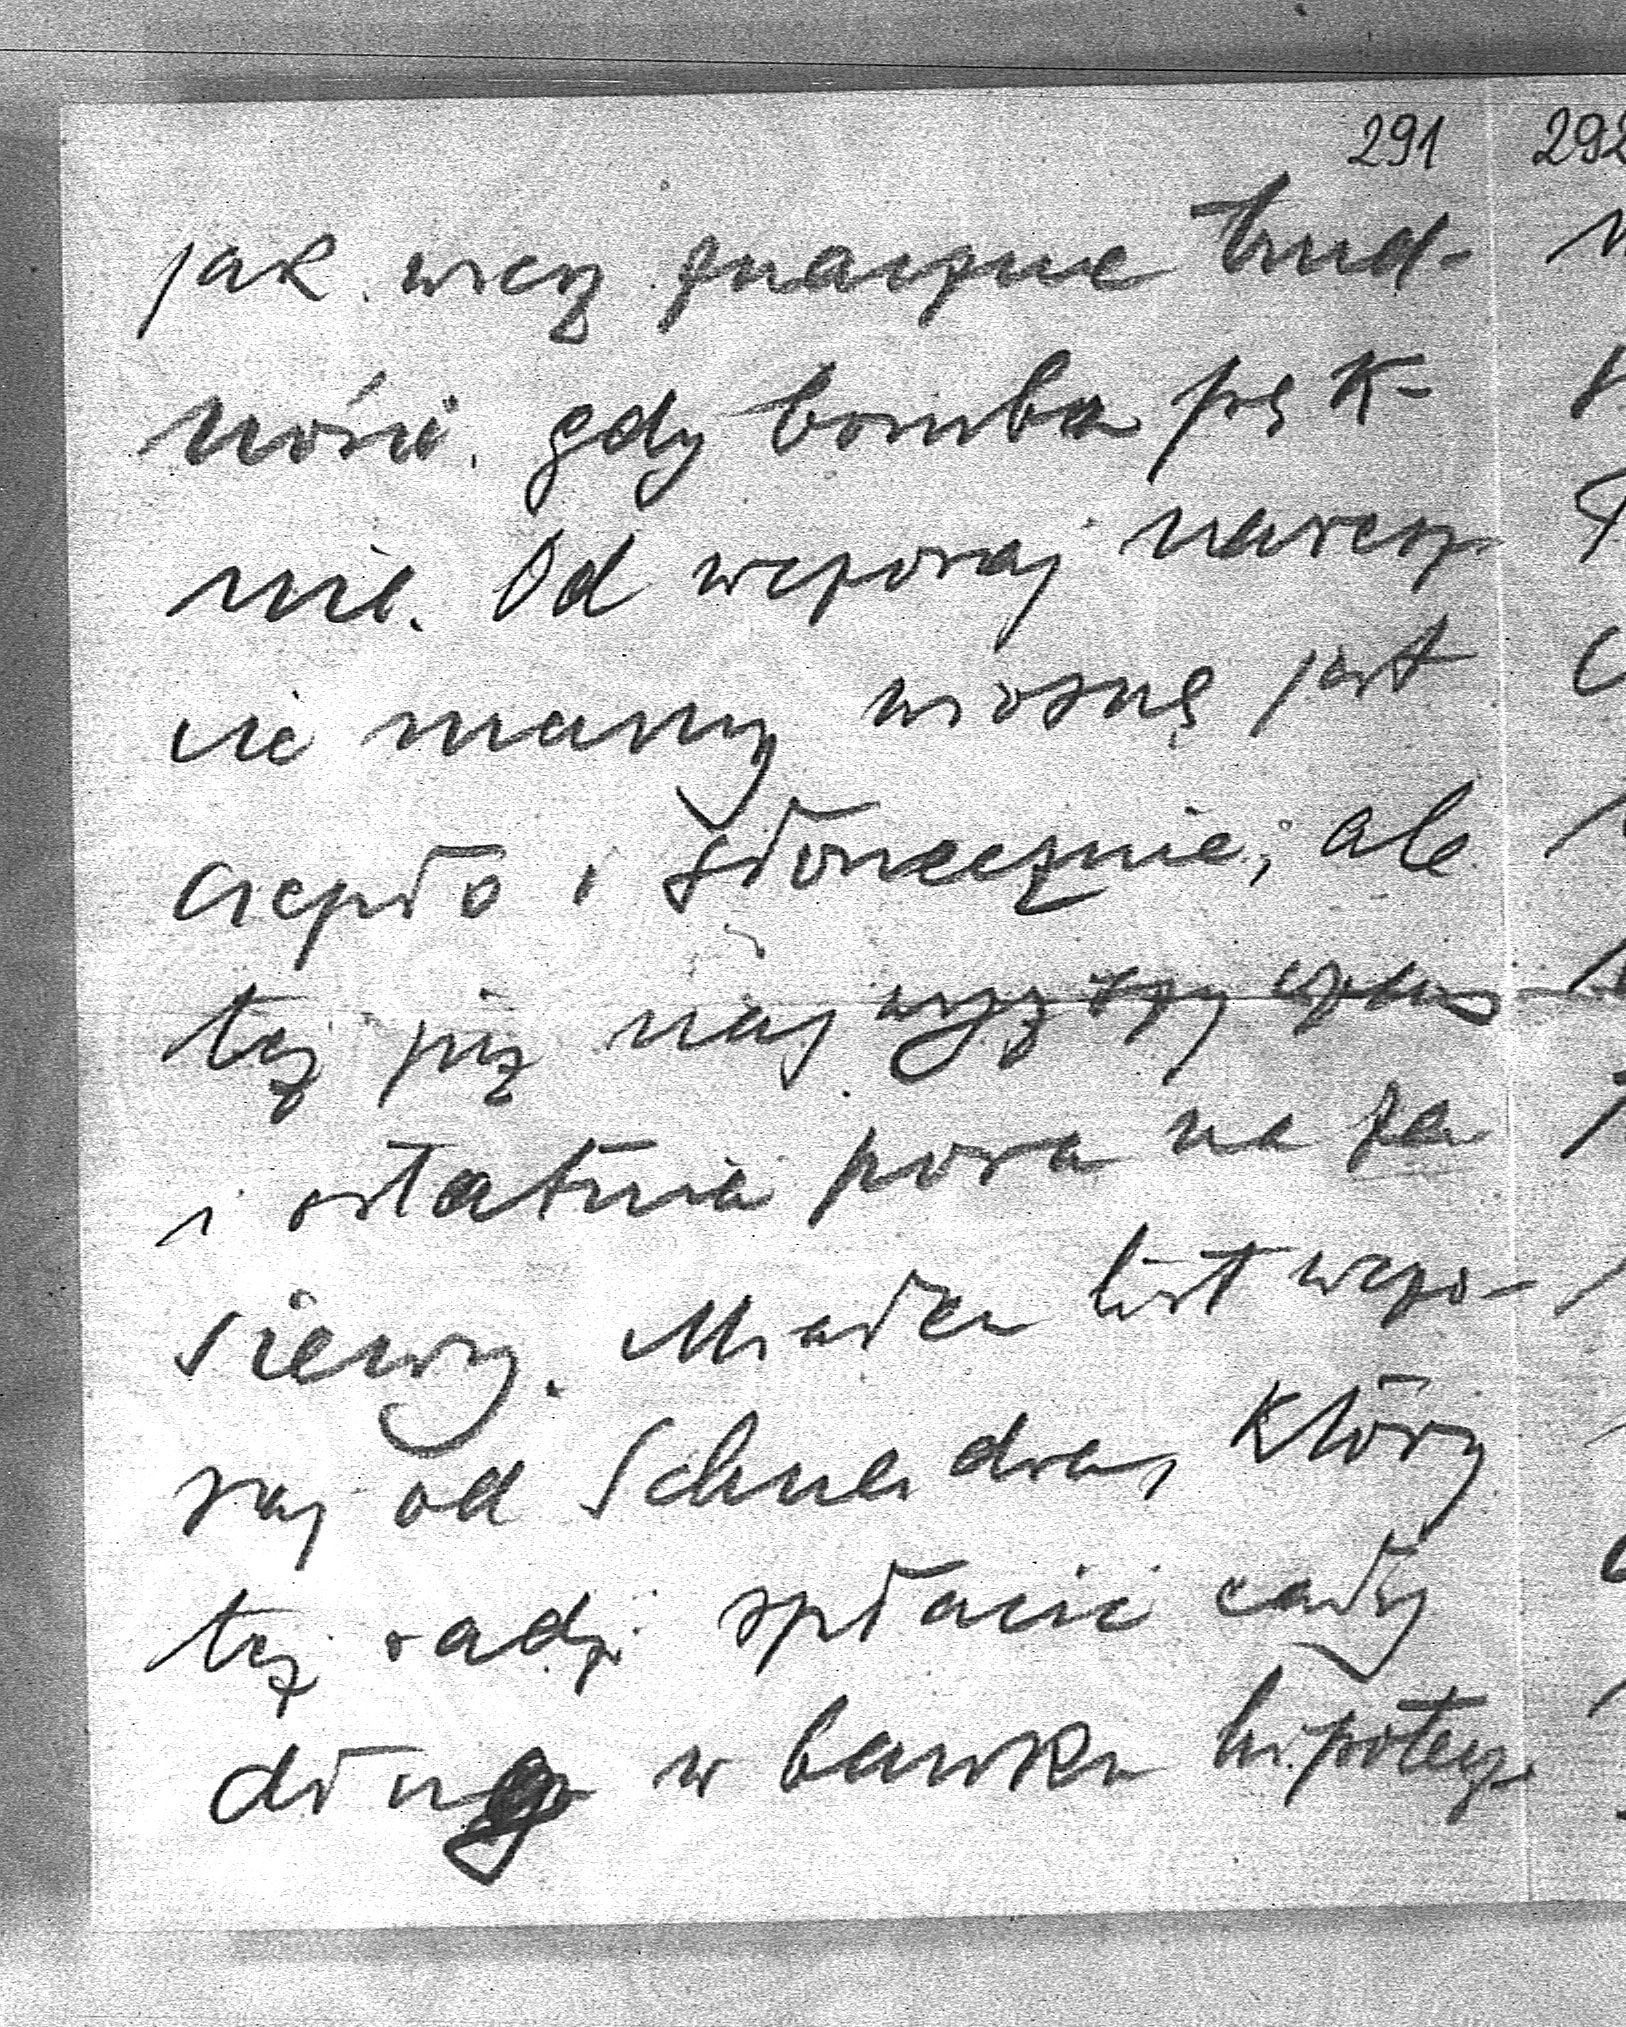 291 292
jak wręcz znaczne trud-
ności, gdy bomba pęk-
nie. Od wczoraj naresz-
cie mamy wiosnę jest
ciepło i słonecznie, ale
też już najwyższy czas
i ostatnia pora na za
siewy. Miałem list wczo-
raj od Schneidra, który
też radzi spłacić cały
dług w banku hipotecz.